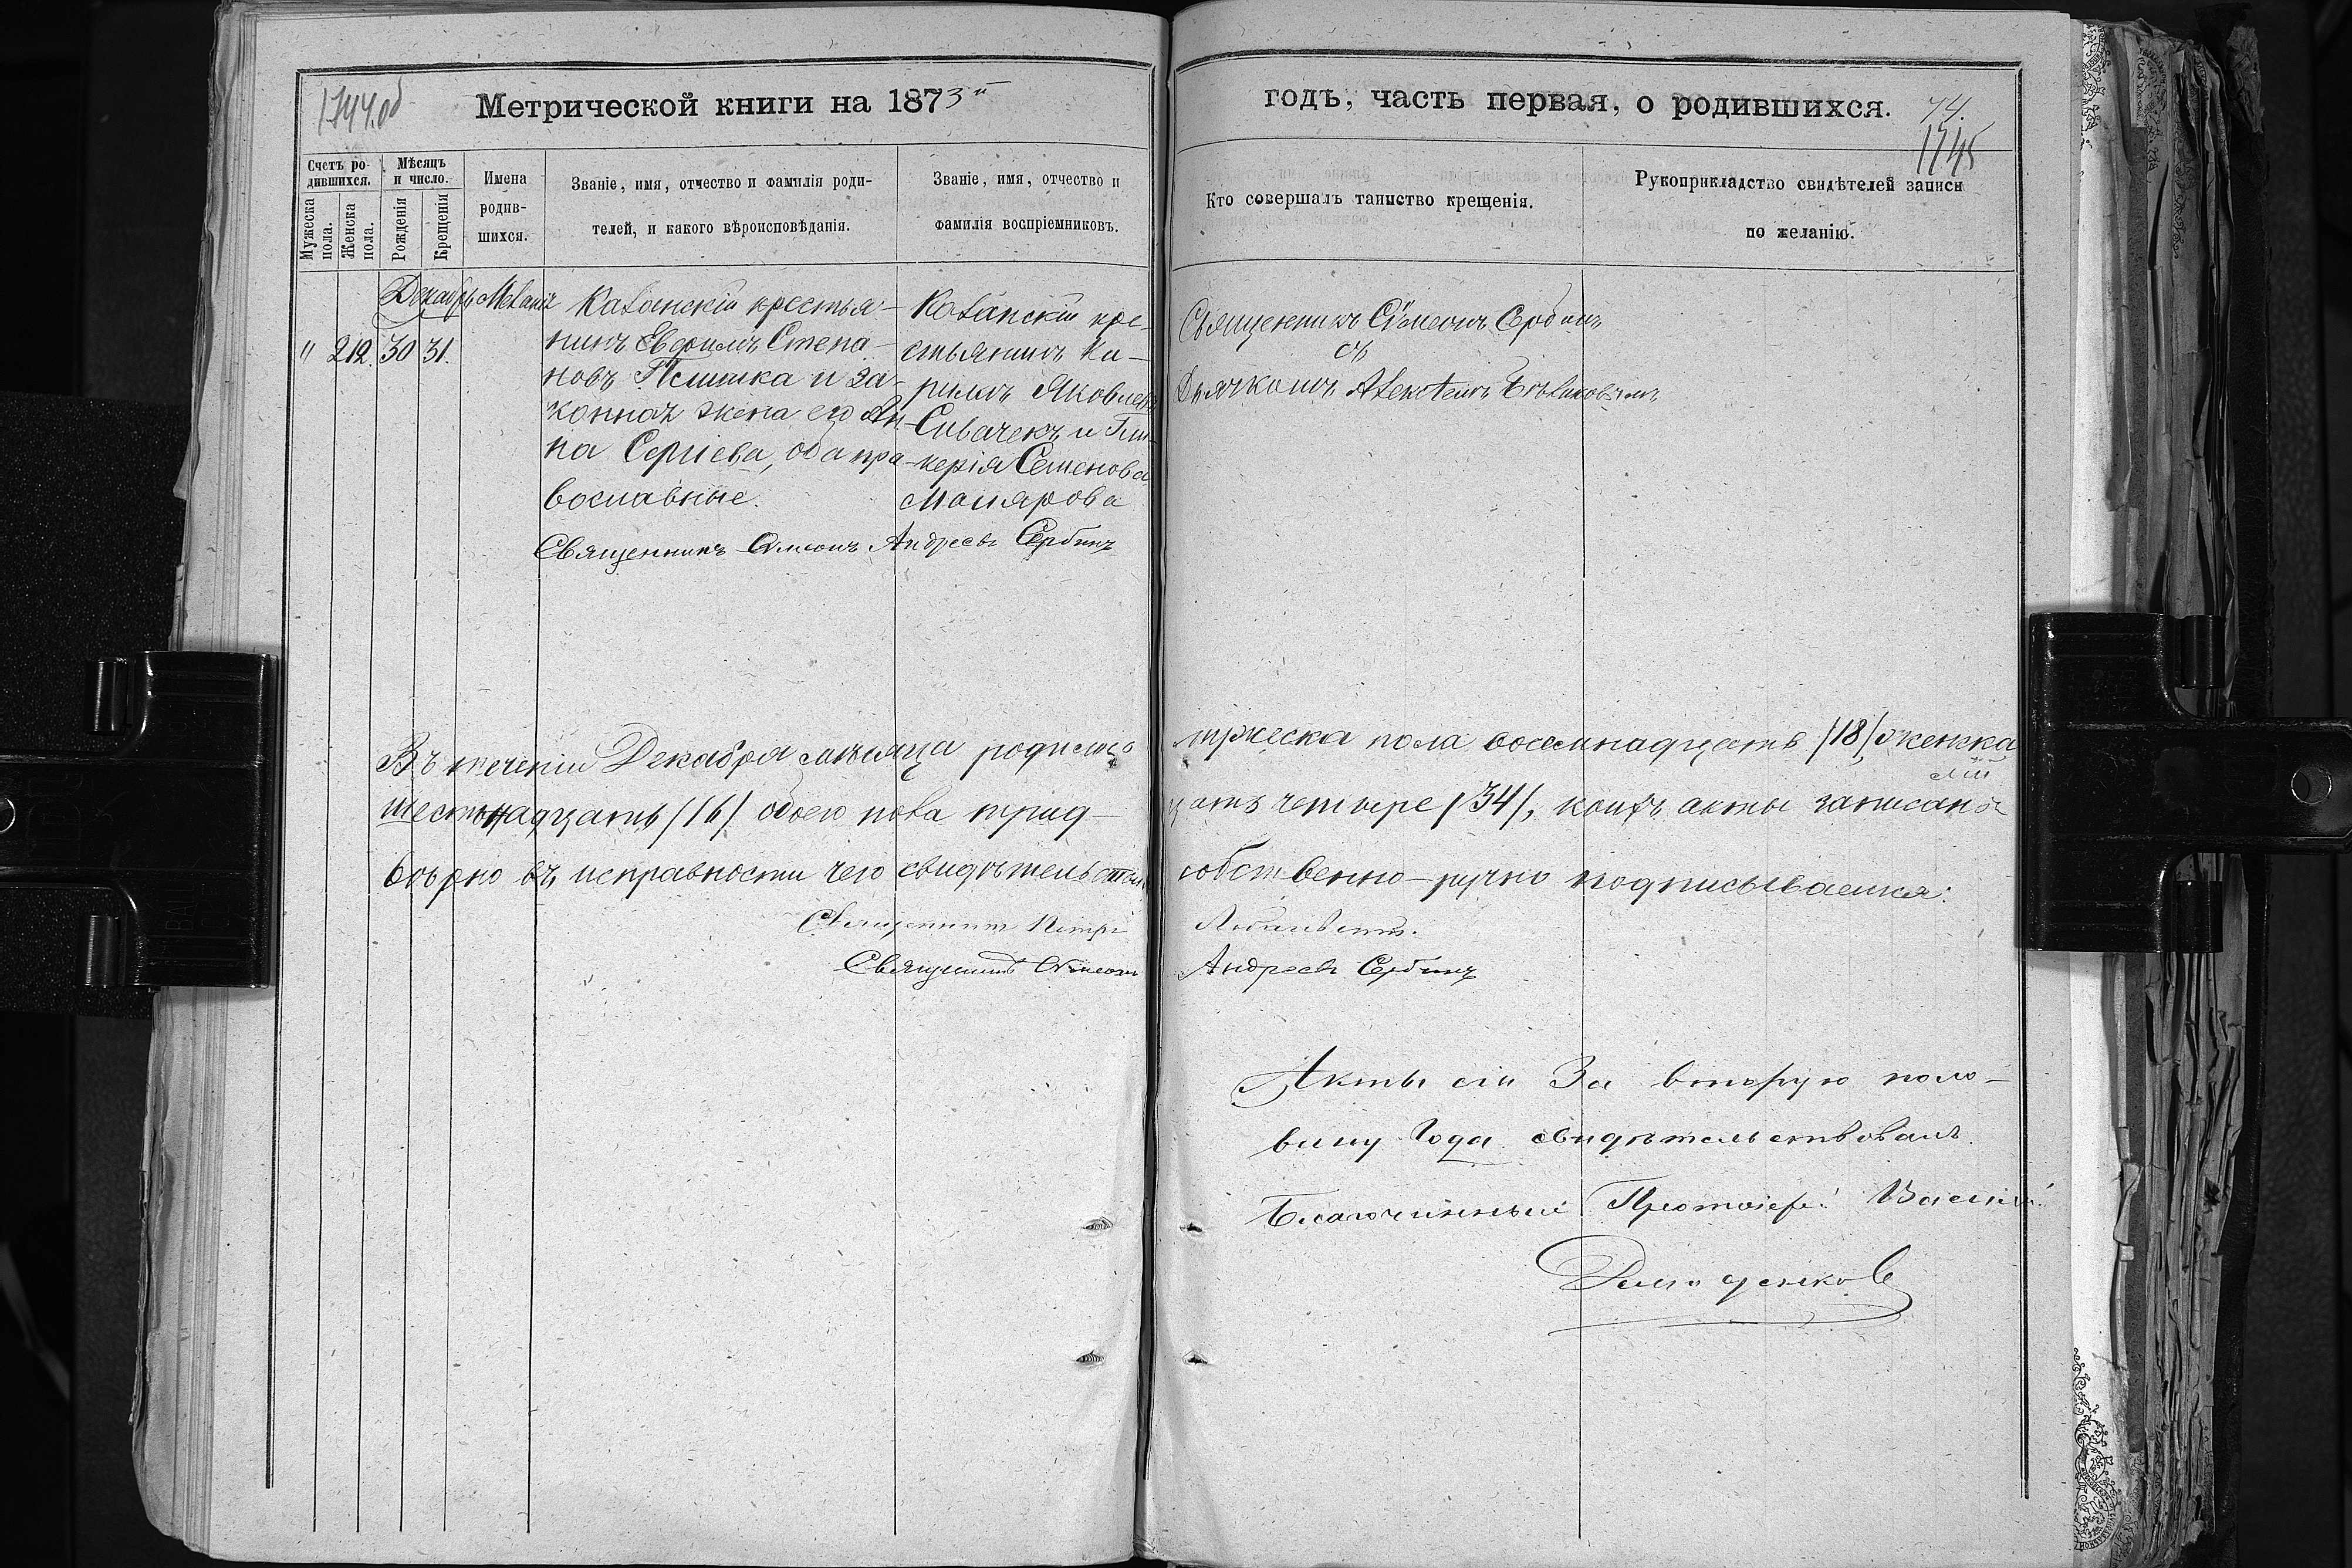 1744 об
Метрической книги на 1873й
годъ, часть первая, о родившихся.
74.
1745
Счетъ ро-
дившихся.
Мѣсяцъ
и число.
Мужеска
пола.
Женска
пола.
Рожденія
Крещенія
Имена
родив-
шихся.
Званіе, имя, отчество и фамилія роди-
телей, и какого вѣроисповѣданія.
Званіе, имя, отчество и
фамилія воспріемниковъ.
Кто совершалъ таинство крещенія.
Рукоприкладство свидѣтелей записи
по желанію.
Декабрь
" 212. 30 31.
Меланія
крестья-
нинъ Евфимъ Степа-
новъ и за-
конная жена его Ан-
на Сергіева, оба пра-
вославные.
кре-
стьянинъ Ки-
рилъ Яковлевъ
Сивачекъ и Гли-
керія Семенова
Малярова
Священникъ Симеонъ Андреевъ Сербинъ
Священникъ Симеонъ Сербинъ
съ
Дьячкомъ Алексѣемъ
Въ теченіи Декабря мѣсяца родилось
мужеска пола восемнадцать /18/, женска
шестнадцать /16/ обоего пола трид-
цать четыре /34/, коихъ акты записаны
вѣрно въ исправности чего свидѣтельствуя
собственно-ручно подписываемся:
Священникъ Петръ
Священникъ Симеонъ
Андреевъ Сербинъ
Акты сіи За вторую поло-
вину Года свидѣтельствовалъ
Благочинный Протоіерей Василій